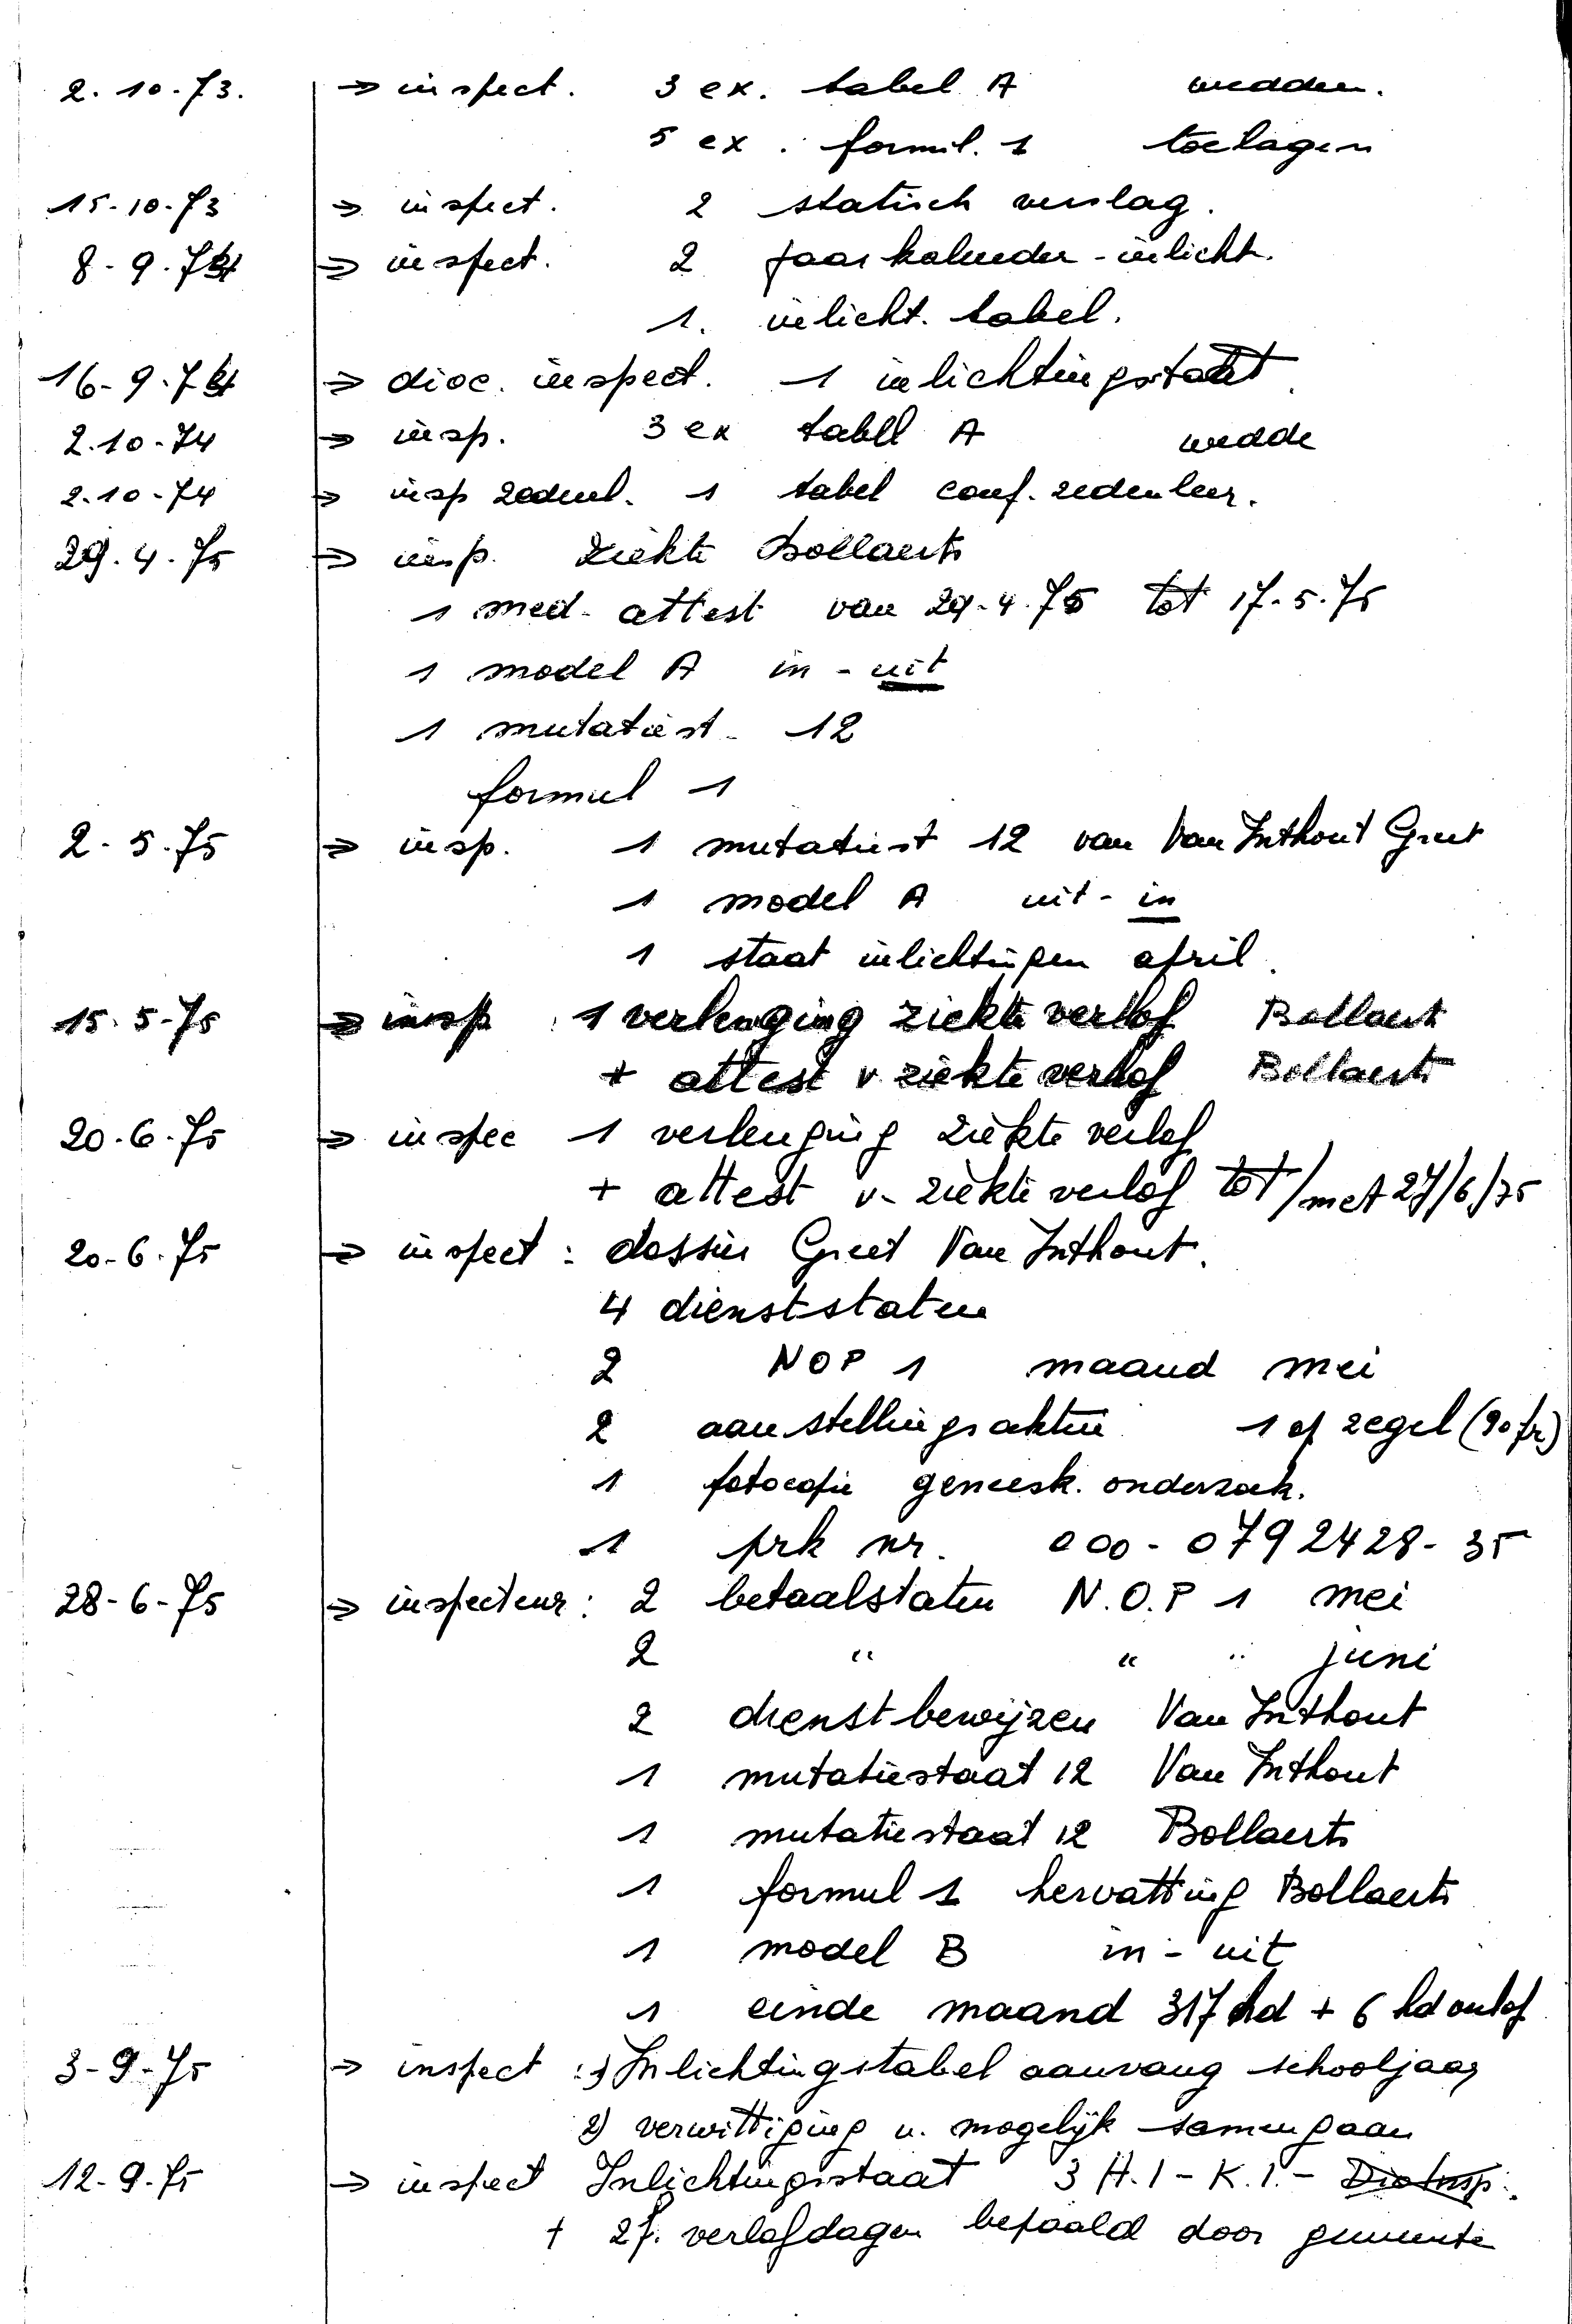 2.10.73. => inspect. 3 ex. tabel A wedden.
5 ex. formul. 1 toelagen
15-10-73 => inspect. 2 statisch verslag.
8-9-74 => inspect. 2 jaarkalender-inlicht.
1. inlicht. tabel.
16-9-74 => dioc. inspect. 1 inlichtingstaat.
2.10-74 => insp. 3 ex tabel A wedde
2.10-74 => insp zedenl. 1 tabel conf. zedenleer.
29.4.75 => insp. ziekte Bollaerts
1 med. attest van 29-4.75 tot 17-5-75
1 model A in - uit
1 mutatiest. 12
formul 1
2-5-75 => insp. 1 mutatiest 12 van Van Inthout Greet
1 model A uit - in
1 staat inlichtingen april.
15-5-75 => insp : 1 verlenging ziekteverlof Bollaerts
+ attest v ziekteverlof Bollaerts
20-6-75 => inspec 1 verlenging ziekteverlof
+ attest v. ziekteverlof tot/met 27/6/75
20-6-75 => inspect : dossier Greet Van Inthout.
4 dienststaten
2 NOP 1 maand mei
2 aanstellingsakten 1 op zegel (90 fr)
1 fotocopie geneesk. onderzoek.
1 prk nr. 000-0792428-35
28-6-75 => inspecteur : 2 betaalstaten N.O.P 1 mei
2 " " " juni
2 dienstbewijzen Van Inthout
1 mutatiestaat 12 Van Inthout
1 mutatiestaat 12 Bollaerts
1 formul 1 hervatting Bollaerts
1 model B in - uit
1 einde maand 317 hd + 6 hd
3-9-75 => inspect : 1) Inlichtingstabel aanvang schooljaar
2) verwittiging v. mogelijk samengaan
12-9-75 => inspect Inlichtingsstaat 3 H.I - K.I. - Dio Insp.
+ 2 f. verlofdagen bepaald door gemeente